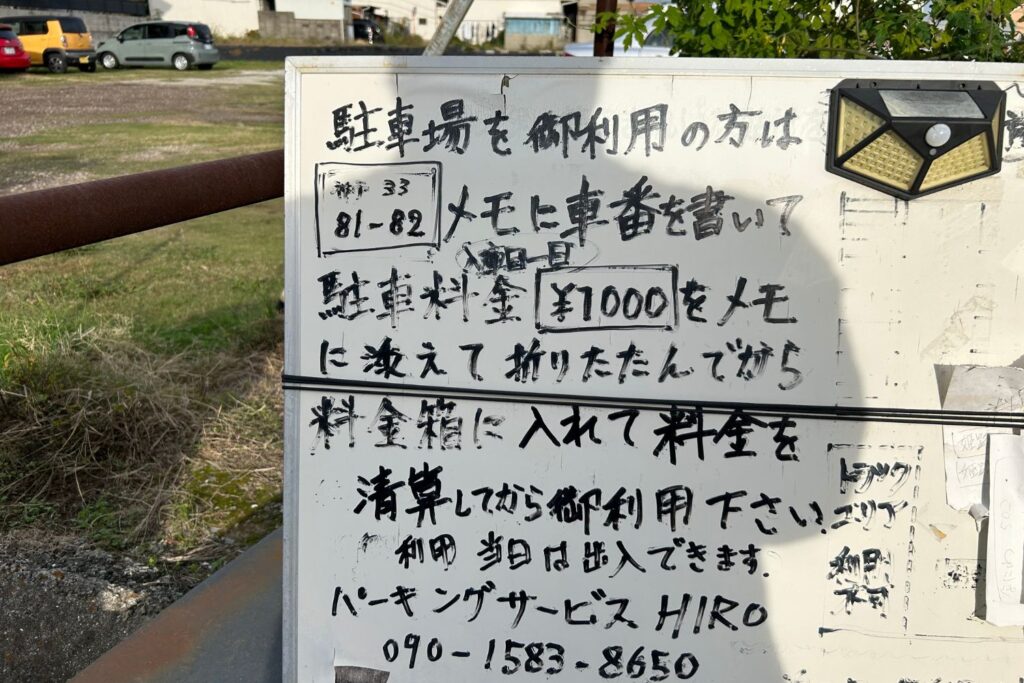 駐車場を御利用の方は
33
81-82 メモに車番を書いて
駐車料金 ¥1000 をメモ
に添えて折りたたんでから
料金箱に入れて料金を
清算してから御利用下さい
利用当日は出入できます.
パーキングサービス HIRO
090-1583-8650
トラック
エリア
利用
不可